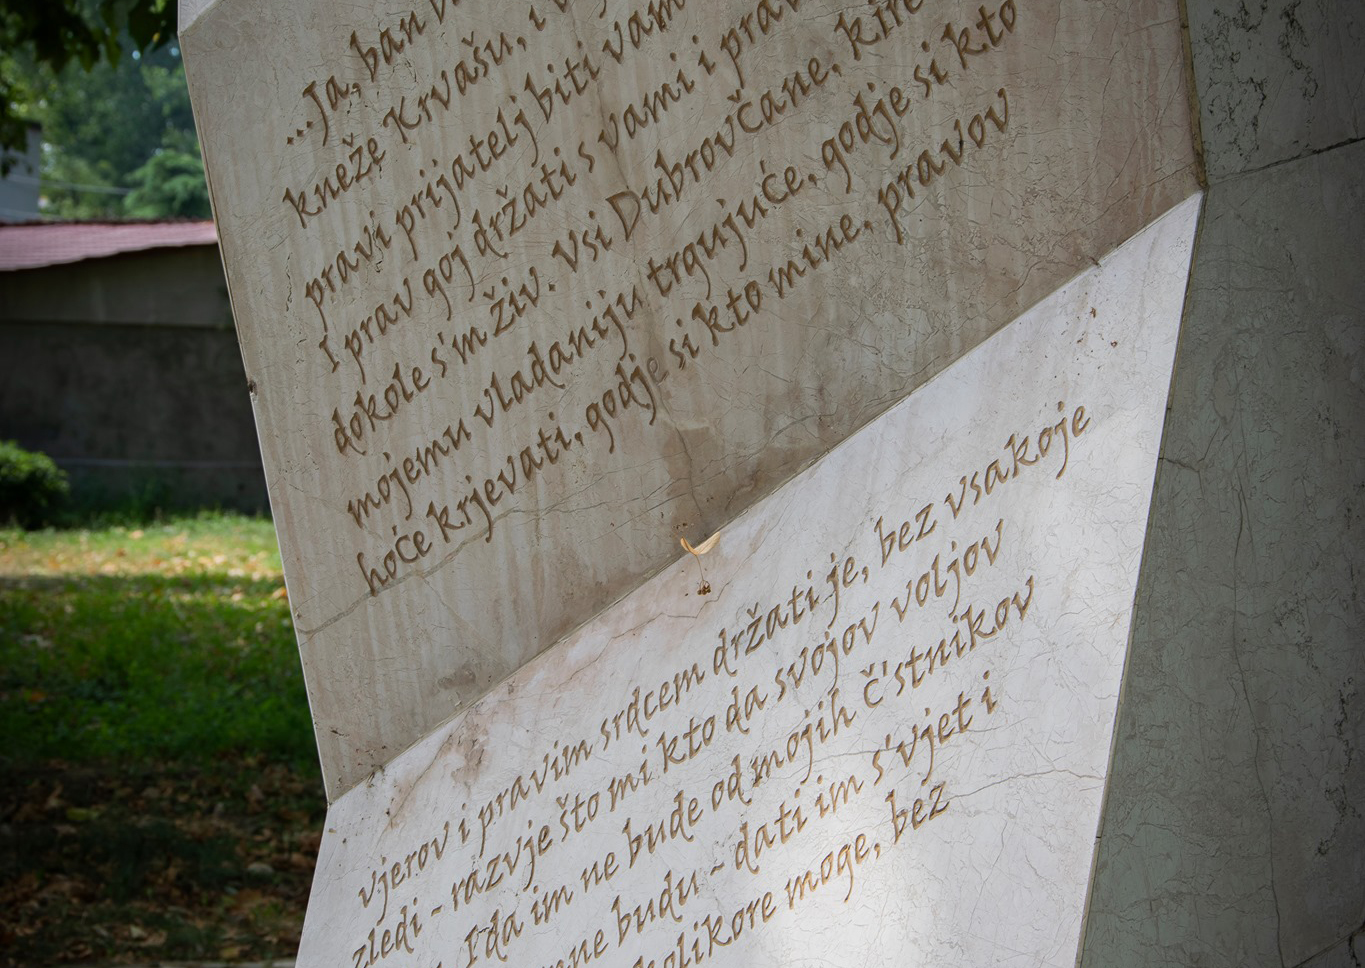 ...Ja, ban
kneže Krvašu, i
pravi prijatelj biti vam
I prav goj držati s vami i prav
dokole s'm živ. Vsi Dubrovčane, kire
mojemu vladaniju trgujuće, godje si kto
hoće krjevati, godje si kto mine, pravov
vjerov i pravim srdcem držati je, bez vsakoje
zledi - razvje što mi kto da svojov voljov
I da im ne buđe od mojih č'stnikov
ne budu - dati im s'vjet i
kolikore moge, bez